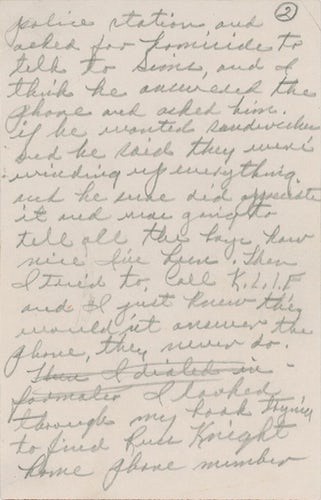 ②
police station and
asked for homicide to
talk to Sims, and I
think he answered the
phone and asked him.
if he wanted sandwiches
and he said they were
winding up everything.
and he sure did appreciate
it and was going to
tell all the boys how
nice I've been. Then
I tried to call K.L.I.F
and I just knew they
would'nt answer the
phone, they never do.
Then I dialed in-
formation I looked
through my book trying
to find Russ Knight
home phone number